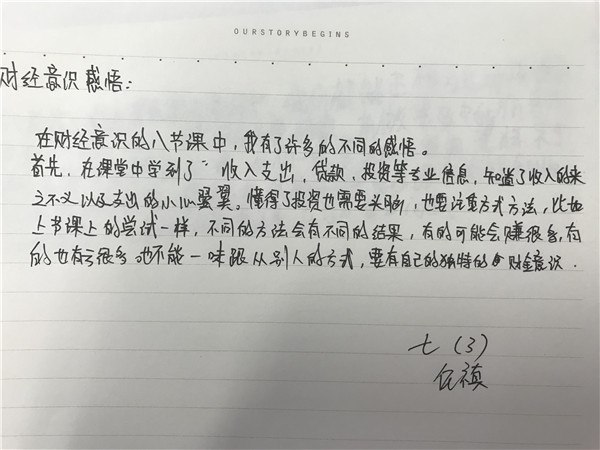 OURSTORYBEGINS
财经意识感悟:
在财经意识的八节课中,我有了许多的不同的感悟。
首先,在课堂中学到了 收入支出,贷款,投资等专业信息,知道了收入的来
之不义以及支出的小心翼翼。懂得了投资也需要头脑,也要注意方式方法,比如
上节课上的尝试一样,不同的方法会有不同的结果,有的可能会赚很多,有
的也亏很多 也不能一味跟从别人的方式,要有自己的独特的 财金意识.
七(3)
禛